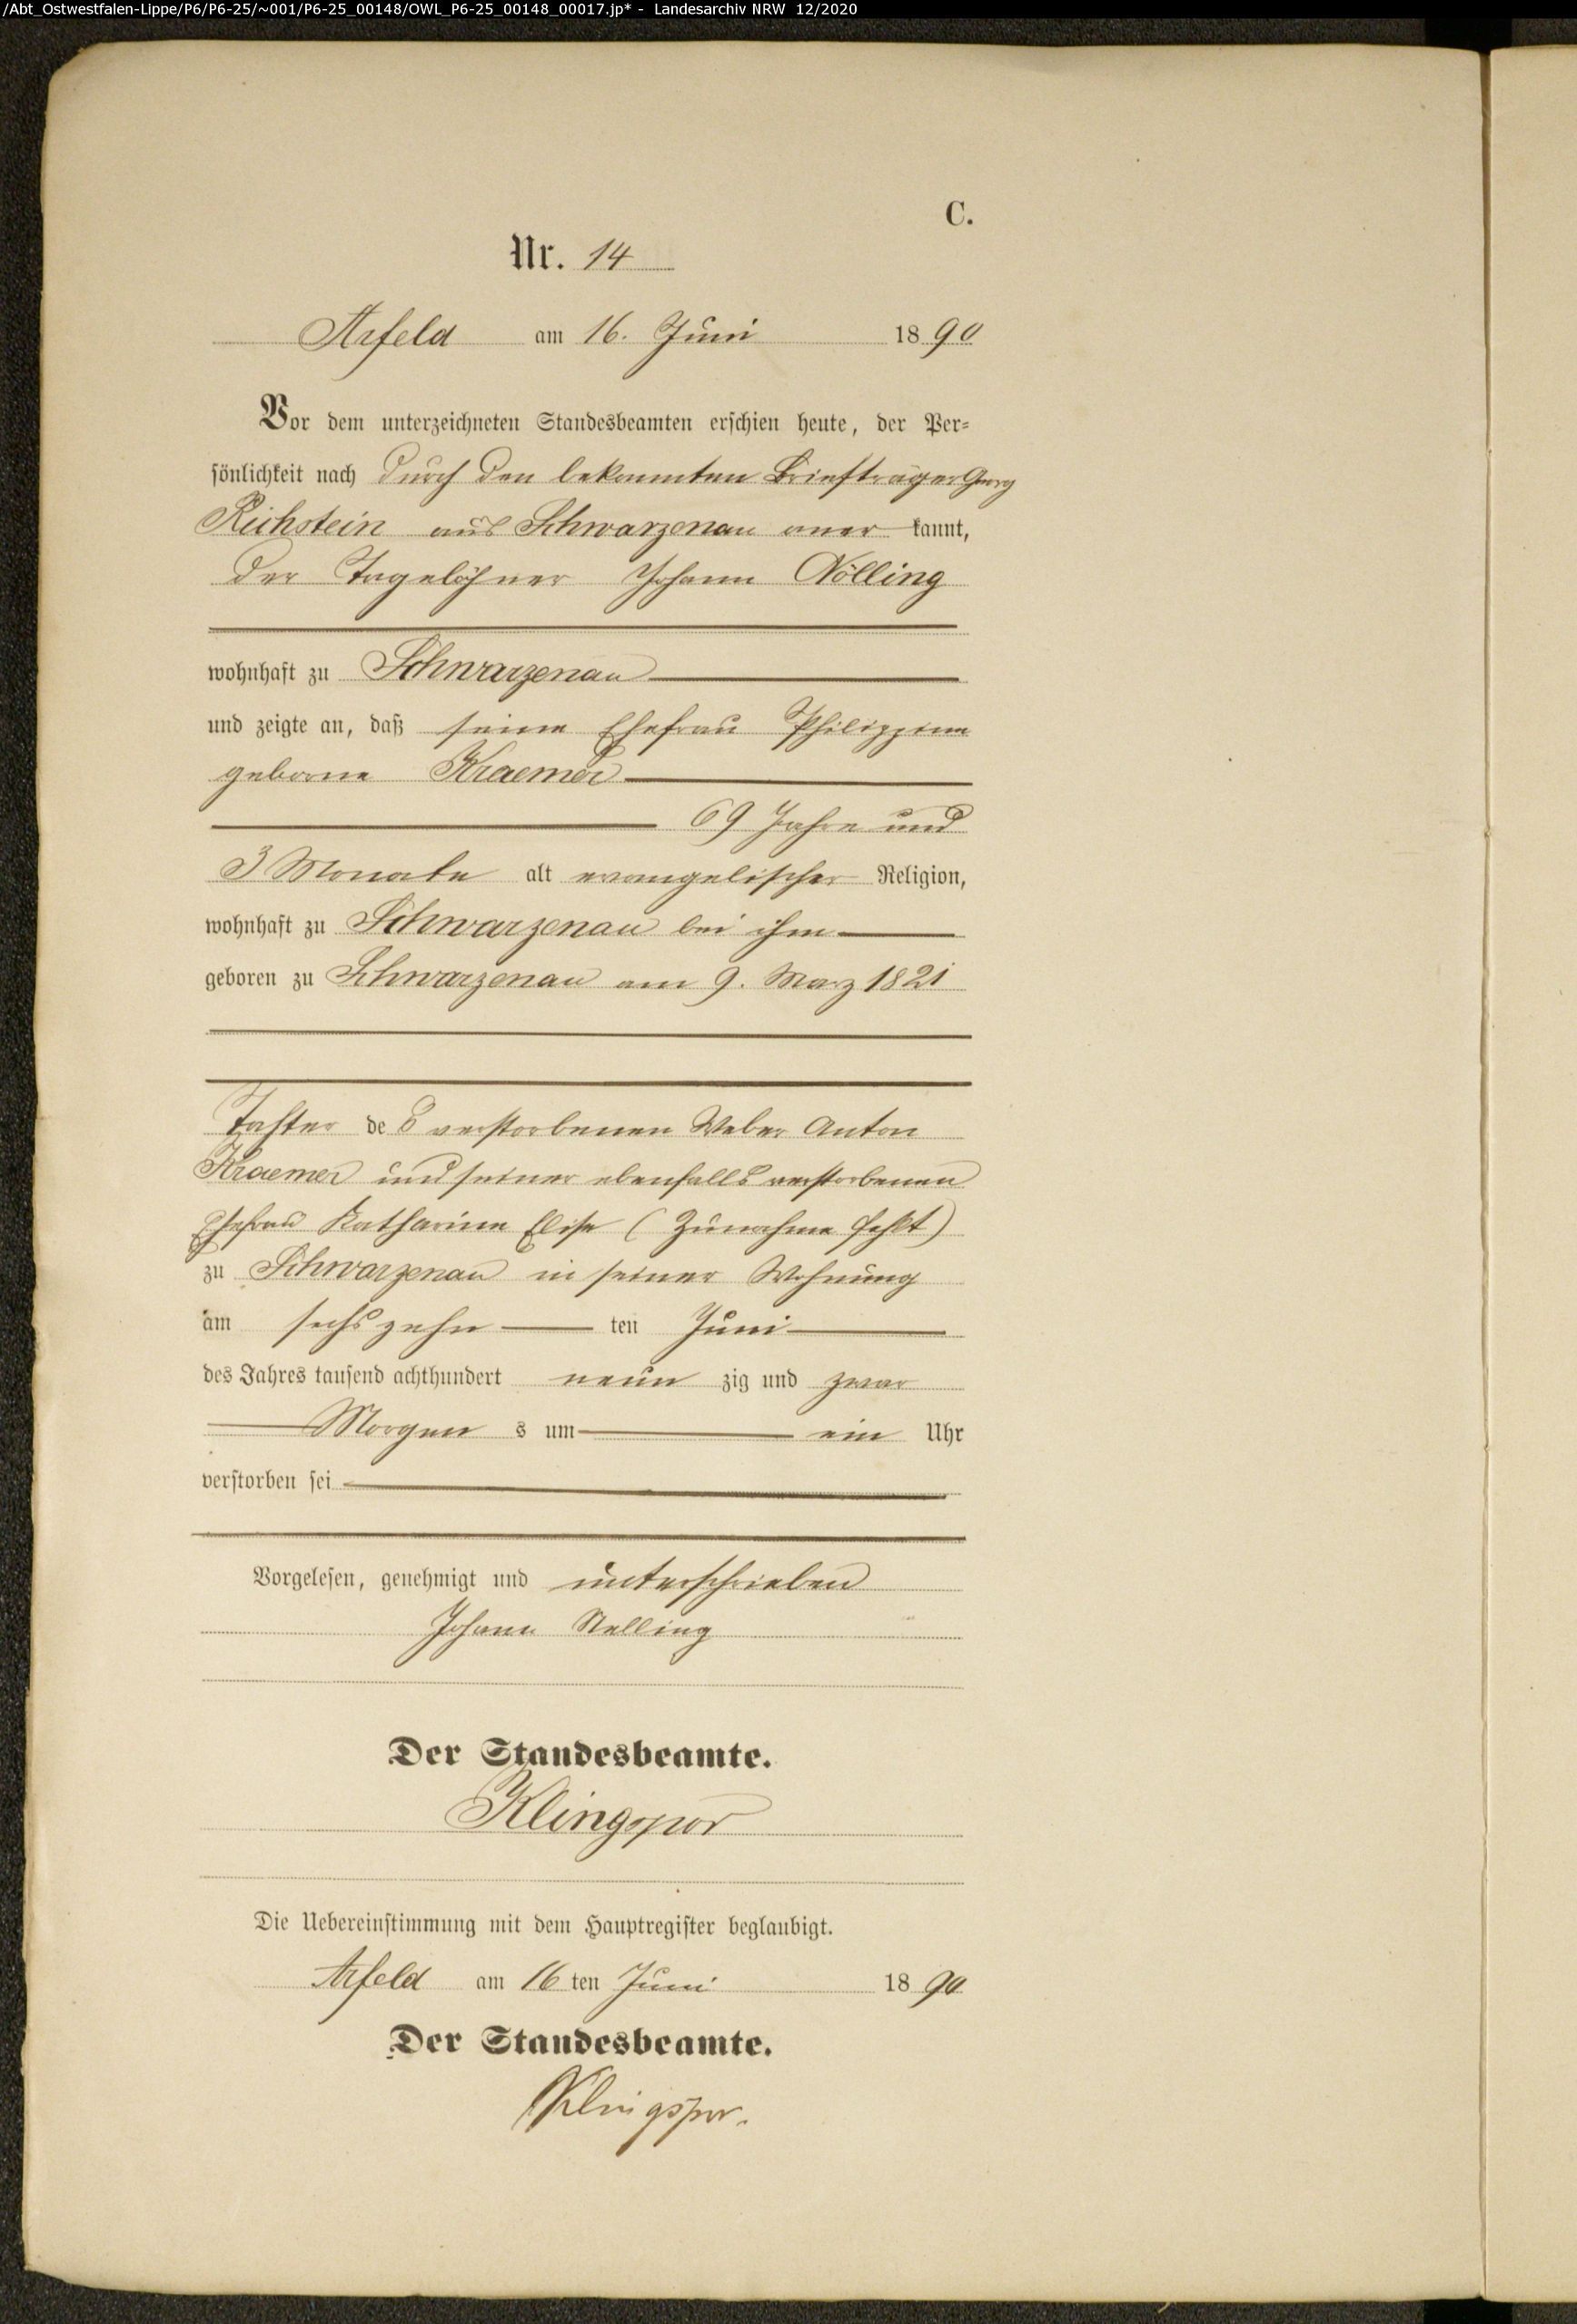 /Abt_Ostwestfalen-Lippe/P6/P6-25/~001/P6-25_00148/OWL_P6-25_00148_00017.jp* - Landesarchiv NRW 12/2020
C.
Nr. 14
Arfeld am 16. Juni 1890
Vor dem unterzeichneten Standesbeamten erschien heute, der Per-
sönlichkeit nach durch den bekannten Briefträger Georg
Richstein aus Schwarzenau aner kannt,
der Tagelöhner Johann Nölling
wohnhaft zu Schwarzenau
und zeigte an, daß seine Ehefrau Philippine
geborne Kraemer
69 Jahre und
3 Monate alt evangelischer Religion,
wohnhaft zu Schwarzenau bei ihm
geboren zu Schwarzenau am 9. März 1821
Tochter des verstorbenen Weber Anton
Kraemer und seiner ebenfalls verstorbenen
Ehefrau Katharine Elise (Zunahme fehlt)
zu Schwarzenau in seiner Wohnung
am sechszehn ten Juni
des Jahres tausend achthundert neun zig und zwar
Morgen s um ein Uhr
verstorben sei
Vorgelesen, genehmigt und unterschrieben
Johann Nelling
Der Standesbeamte.
Klingspor
Die Uebereinstimmung mit dem Hauptregister beglaubigt.
Arfeld am 16 ten Juni 1890
Der Standesbeamte.
Klingspor.